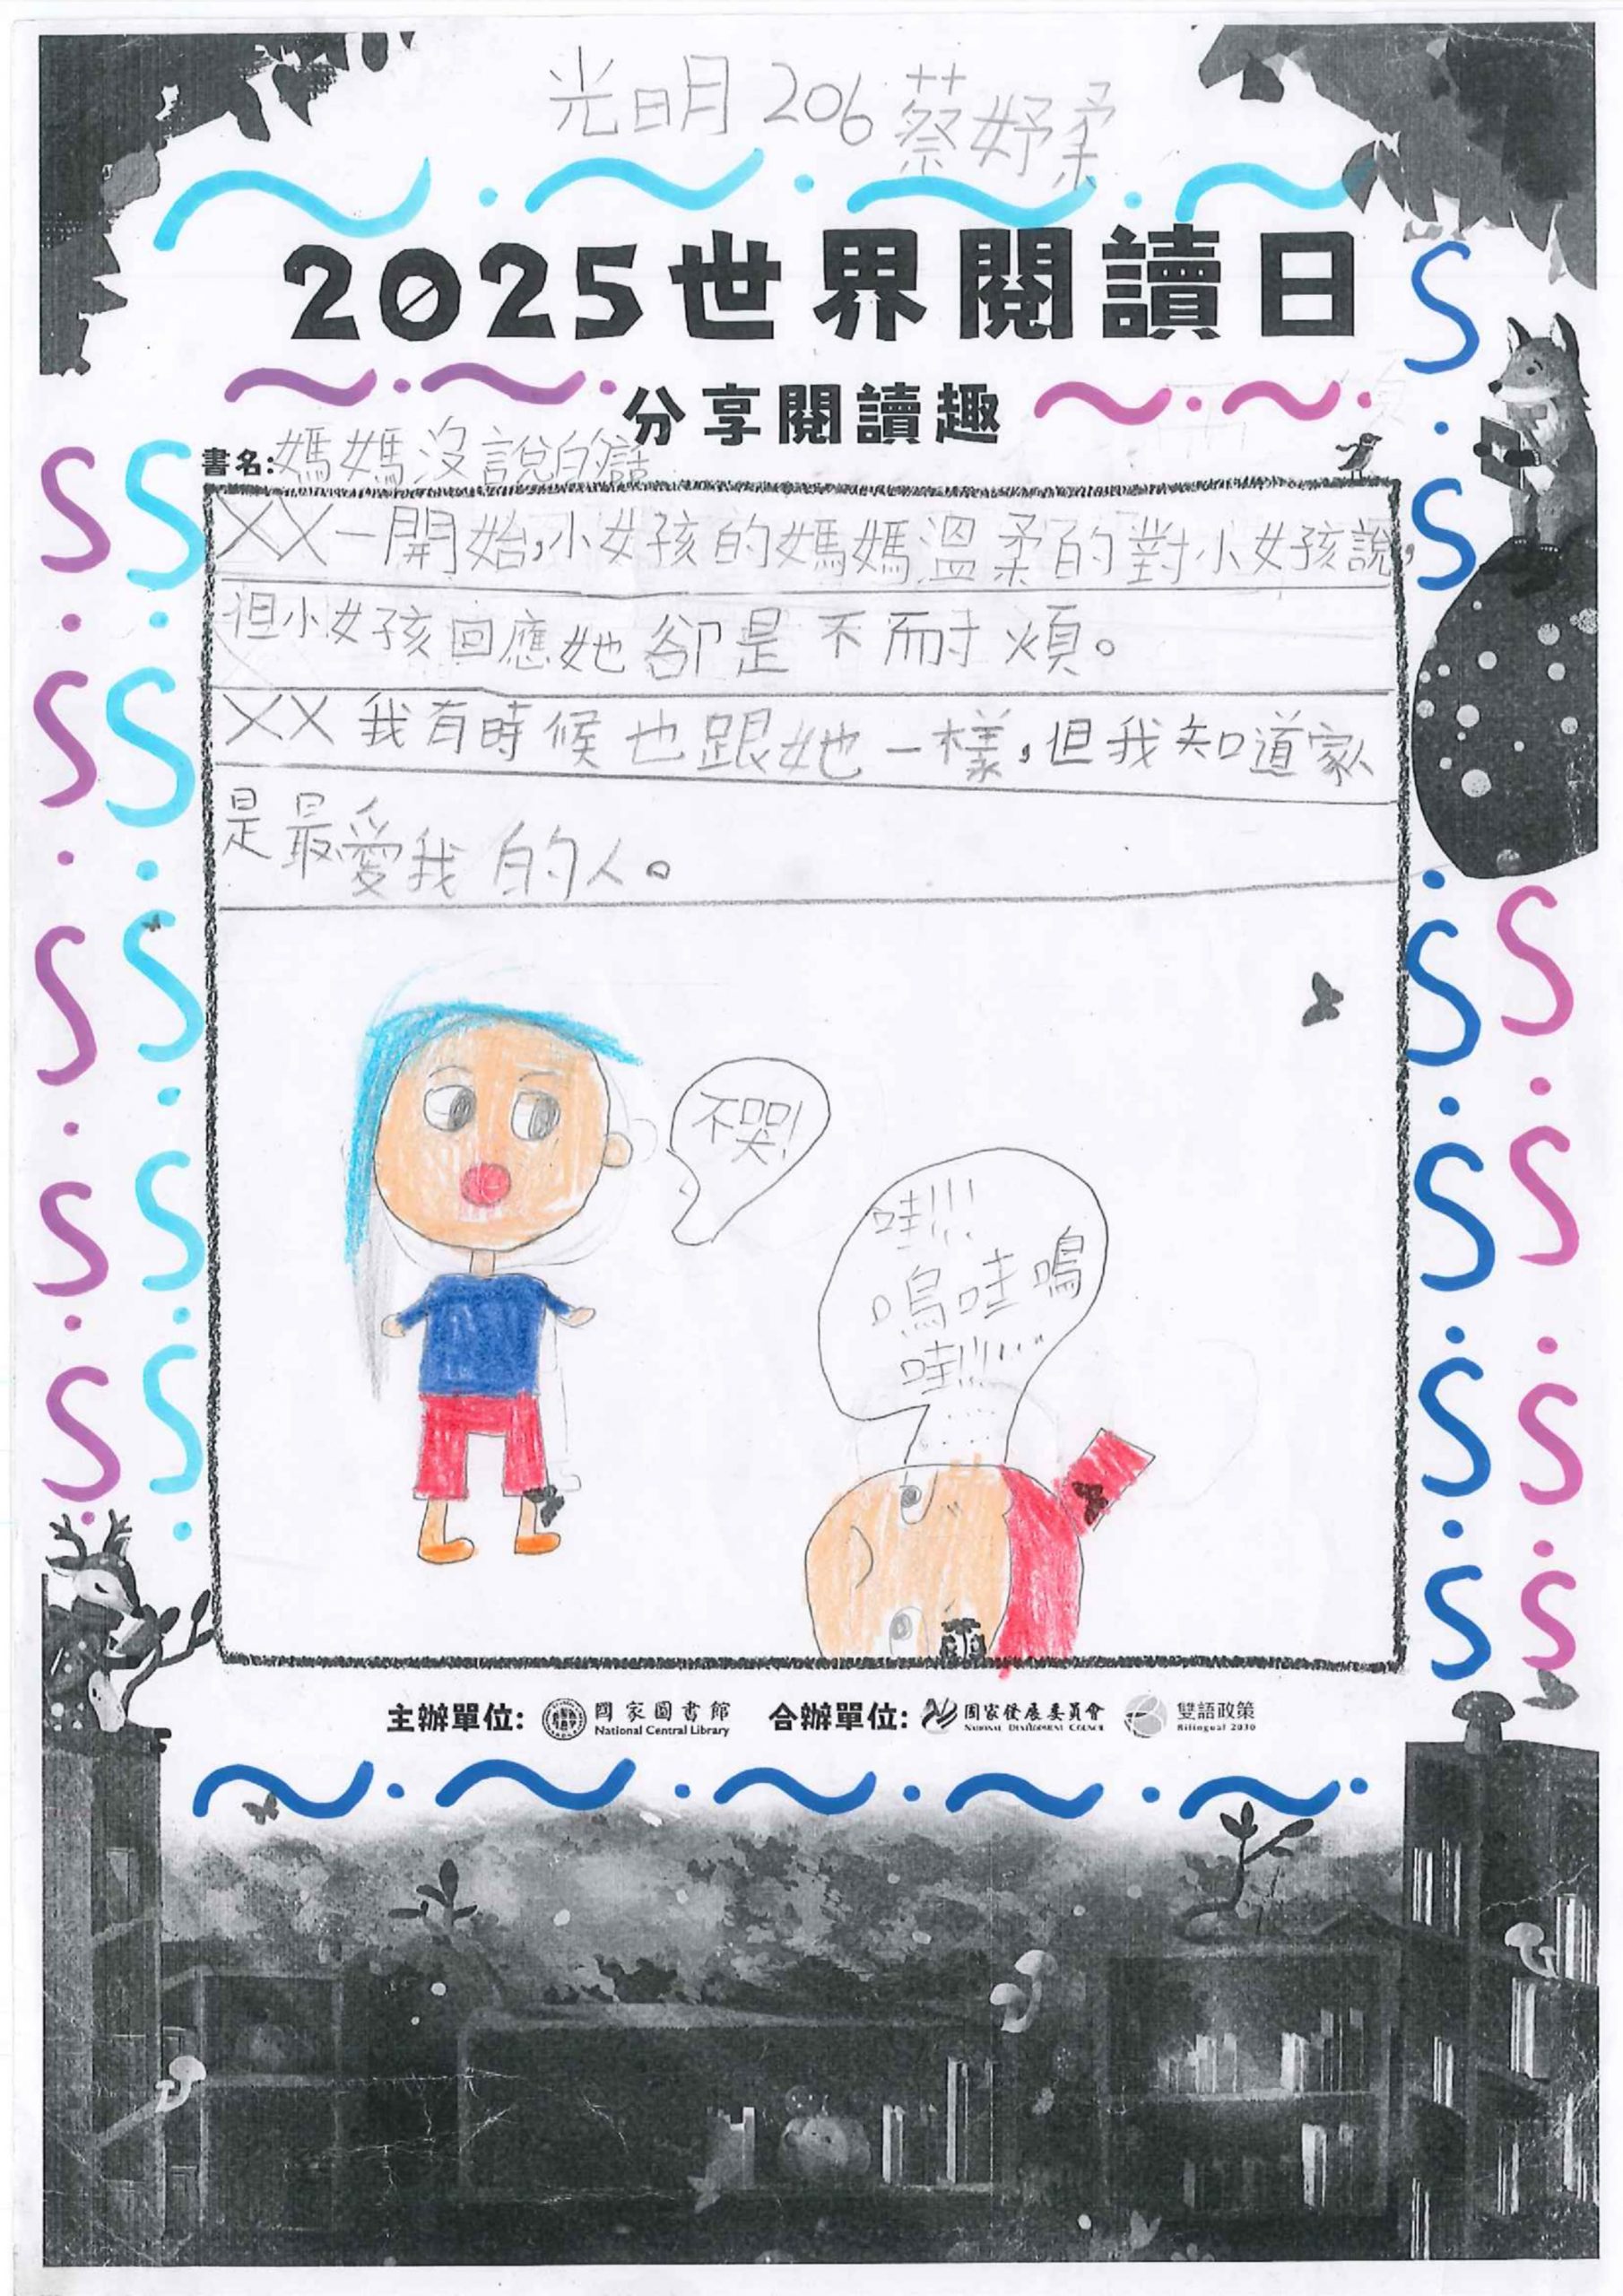 光明 206 蔡妤柔
2025世界閱讀日
分享閱讀趣
書名:媽媽沒說的話
XX一開始,小女孩的媽媽溫柔的對小女孩說,
但小女孩回應她卻是不耐煩。
XX我有時候也跟她一樣,但我知道家人
是最愛我的人。
不哭!
哇!!!
嗚哇嗚
哇!!!!...
主辦單位: 國家圖書館 合辦單位: 國家發展委員會 雙語政策
National Central Library NATIONAL DEVELOPMENT COUNCIL Bilingual 2030